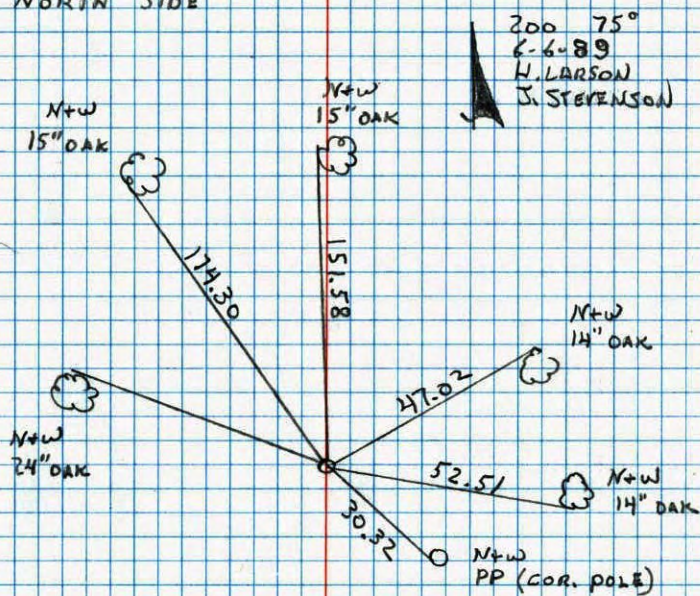 NORTH SIDE
200 75°
6-6-89
H. LARSON
J. STEVENSON
N+W
15" OAK
N+W
15" OAK
174.30
151.58
N+W
14" OAK
47.02
N+W
24" OAK
52.51
N+W
14" OAK
30.32
N+W
PP (COR. POLE)